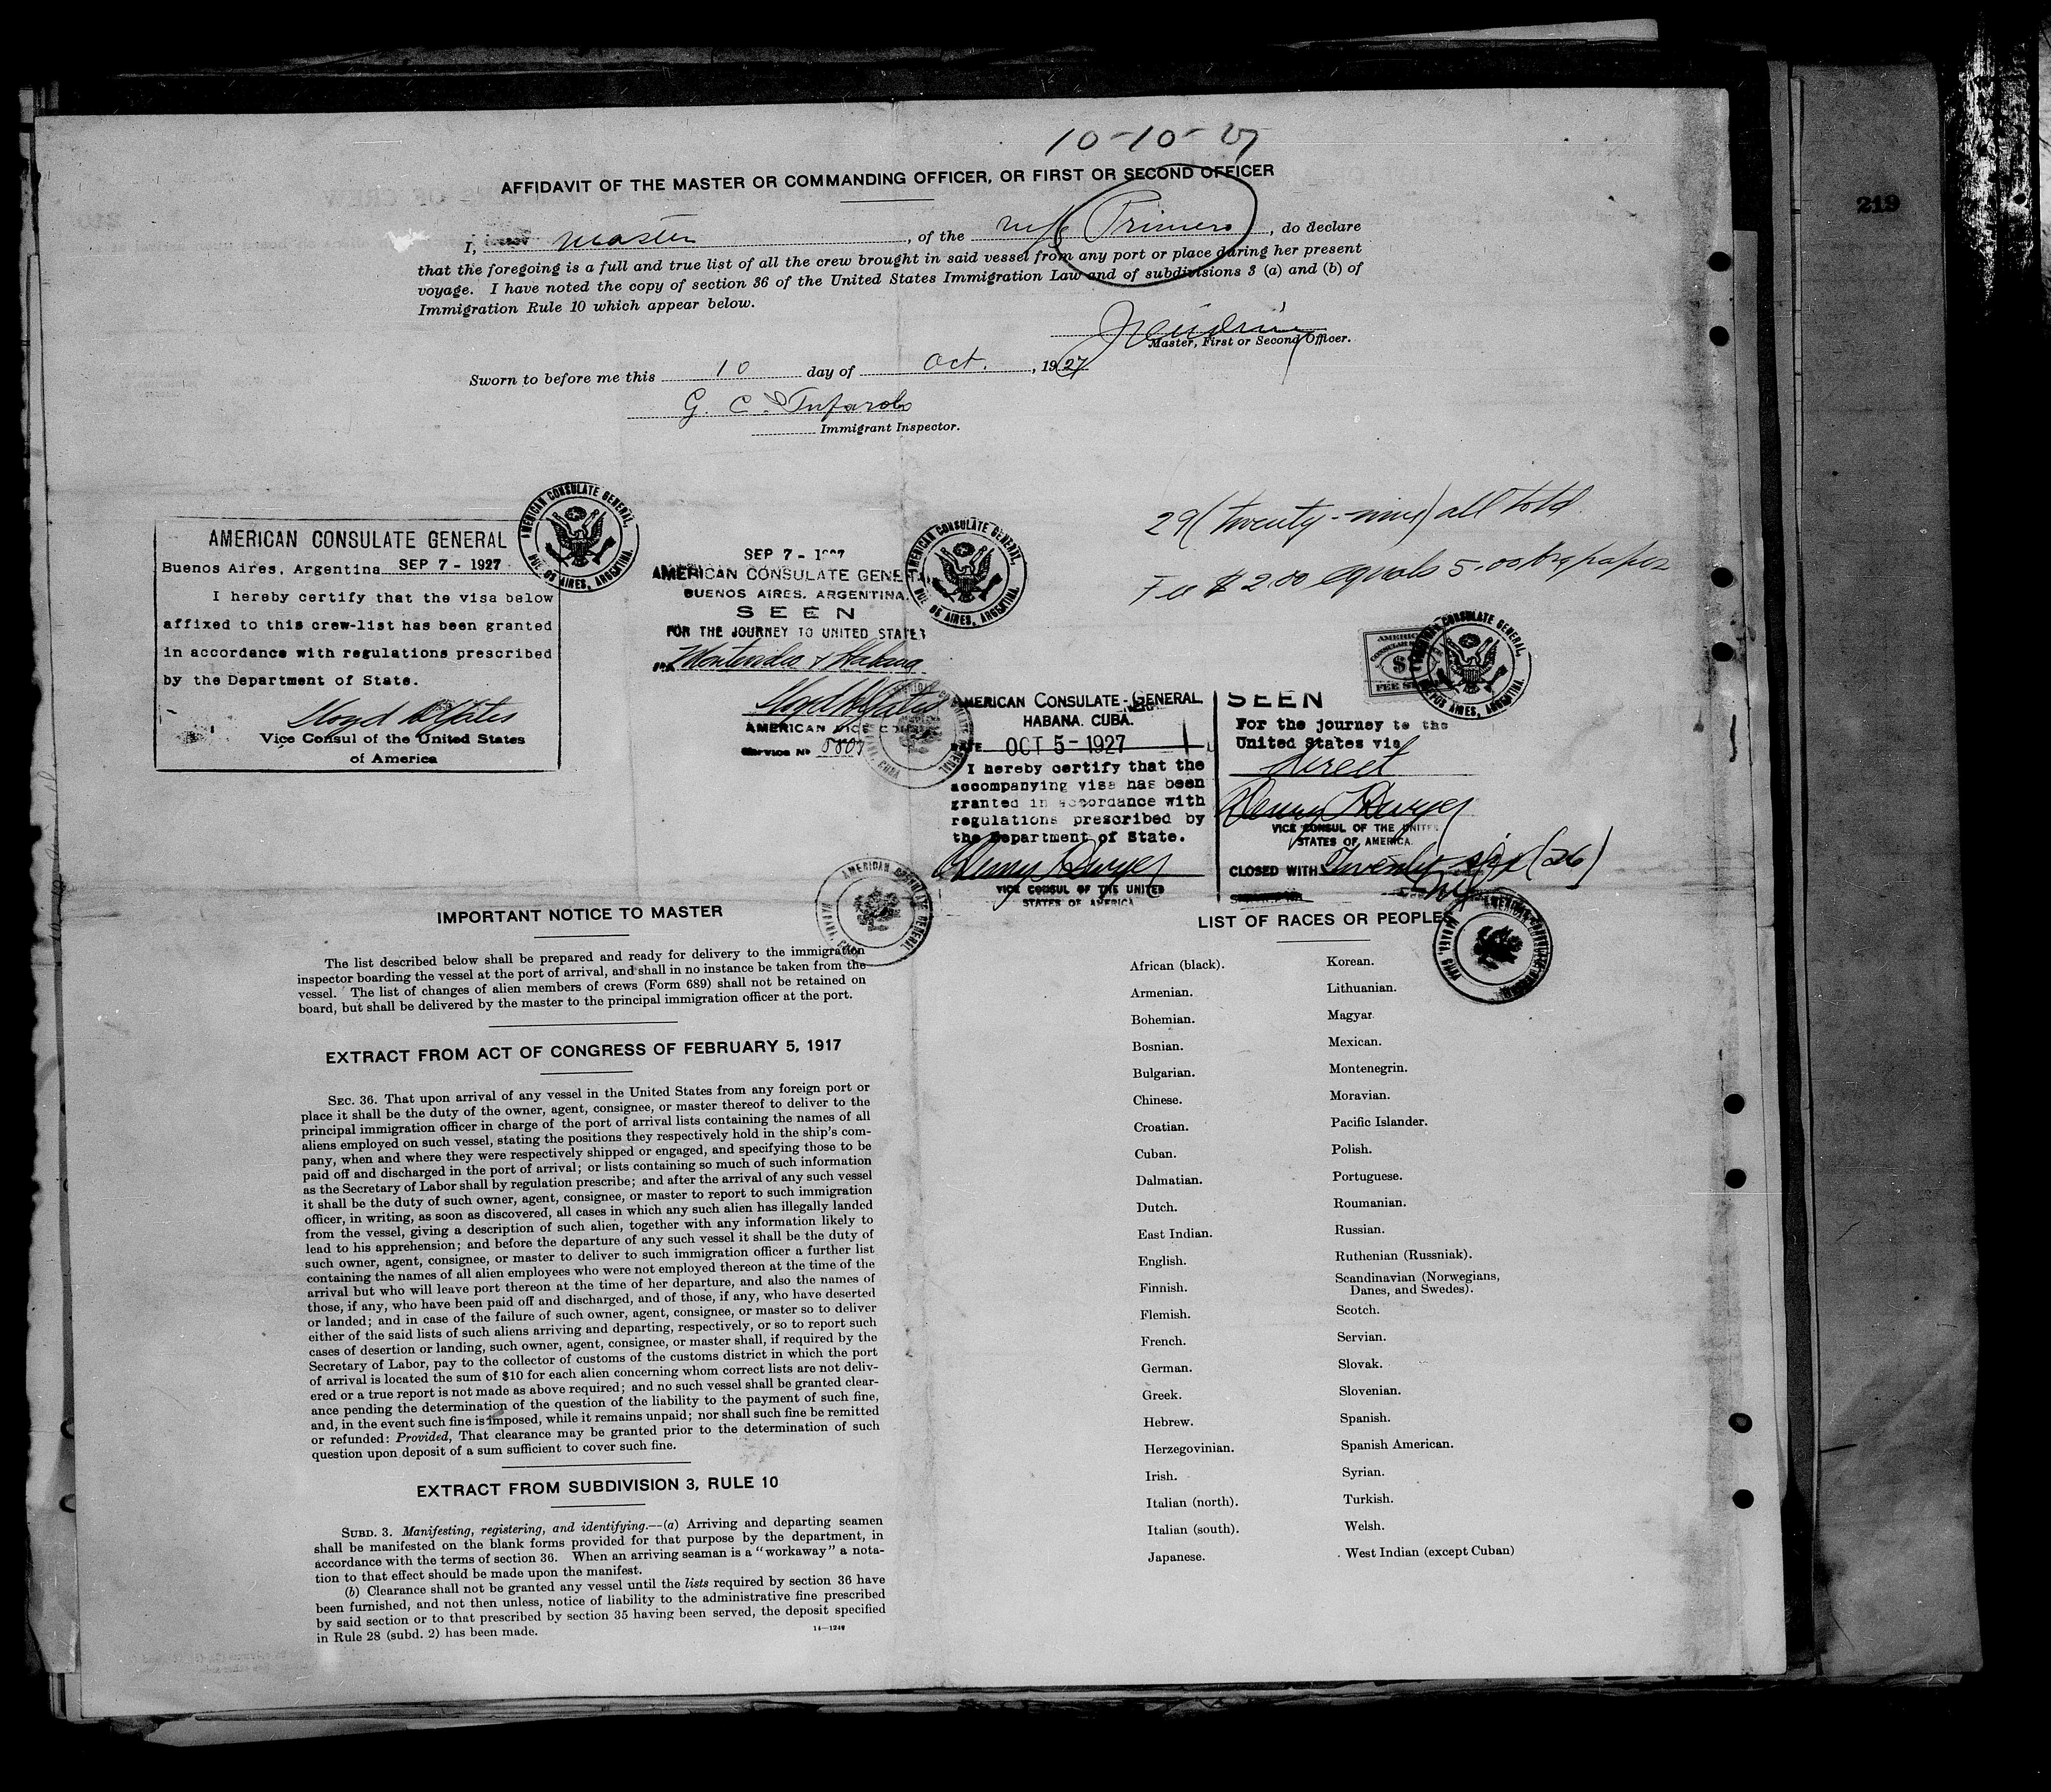 10-10-27
AFFIDAVIT OF THE MASTER OR COMMANDING OFFICER, OR FIRST OR SECOND OFFICER
I, master, of the Primero, do declare
that the foregoing is a full and true list of all the crew brought in said vessel from any port or place during her present
voyage. I have noted the copy of section 36 of the United States Immigration Law and of subdivisions 3 (a) and (b) of
Immigration Rule 10 which appear below.
Master, First or Second Officer.
Sworn to before me this 10 day of Oct., 1927
G. C.
Immigrant Inspector.
219
29 (twenty-nine) all told
Fee $2.00 equals 5.00 Arg paper
AMERICAN CONSULATE GENERAL
Buenos Aires, Argentina SEP 7 - 1927
I hereby certify that the visa below
affixed to this crew-list has been granted
in accordance with regulations prescribed
by the Department of State.
Lloyd D Yates
Vice Consul of the United States
of America
AMERICAN CONSULATE GENERAL, BUENOS AIRES, ARGENTINA.
SEP 7 -
AMERICAN CONSULATE GENERAL
BUENOS AIRES, ARGENTINA.
SEEN
FOR THE JOURNEY TO UNITED STATES
Montevideo & Habana
AMERICAN VICE CONSUL
Service No
AMERICAN CONSULATE GENERAL, BUENOS AIRES, ARGENTINA.
AMERICAN CONSULATE GENERAL, BUENOS AIRES, ARGENTINA.
FEE STAMP
AMERICAN CONSULATE-GENERAL
HABANA. CUBA.
DATE OCT 5-1927
I hereby certify that the
accompanying visa has been
granted in accordance with
regulations prescribed by
the Department of State.
Henry Dwyer
VICE CONSUL OF THE UNITED
STATES OF AMERICA
SEEN
For the journey to the
United States via
direct
Henry Dwyer
VICE CONSUL OF THE UNITED
STATES OF AMERICA.
CLOSED WITH Twenty-six (26)
AMERICAN CONSULATE GENERAL
IMPORTANT NOTICE TO MASTER
The list described below shall be prepared and ready for delivery to the immigration
inspector boarding the vessel at the port of arrival, and shall in no instance be taken from the
vessel. The list of changes of alien members of crews (Form 689) shall not be retained on
board, but shall be delivered by the master to the principal immigration officer at the port.
EXTRACT FROM ACT OF CONGRESS OF FEBRUARY 5, 1917
SEC. 36. That upon arrival of any vessel in the United States from any foreign port or
place it shall be the duty of the owner, agent, consignee, or master thereof to deliver to the
principal immigration officer in charge of the port of arrival lists containing the names of all
aliens employed on such vessel, stating the positions they respectively hold in the ship's com-
pany, when and where they were respectively shipped or engaged, and specifying those to be
paid off and discharged in the port of arrival; or lists containing so much of such information
as the Secretary of Labor shall by regulation prescribe; and after the arrival of any such vessel
it shall be the duty of such owner, agent, consignee, or master to report to such immigration
officer, in writing, as soon as discovered, all cases in which any such alien has illegally landed
from the vessel, giving a description of such alien, together with any information likely to
lead to his apprehension; and before the departure of any such vessel it shall be the duty of
such owner, agent, consignee, or master to deliver to such immigration officer a further list
containing the names of all alien employees who were not employed thereon at the time of the
arrival but who will leave port thereon at the time of her departure, and also the names of
those, if any, who have been paid off and discharged, and of those, if any, who have deserted
or landed; and in case of the failure of such owner, agent, consignee, or master so to deliver
either of the said lists of such aliens arriving and departing, respectively, or so to report such
cases of desertion or landing, such owner, agent, consignee, or master shall, if required by the
Secretary of Labor, pay to the collector of customs of the customs district in which the port
of arrival is located the sum of $10 for each alien concerning whom correct lists are not deliv-
ered or a true report is not made as above required; and no such vessel shall be granted clear-
ance pending the determination of the question of the liability to the payment of such fine,
and, in the event such fine is imposed, while it remains unpaid; nor shall such fine be remitted
or refunded: Provided, That clearance may be granted prior to the determination of such
question upon deposit of a sum sufficient to cover such fine.
EXTRACT FROM SUBDIVISION 3, RULE 10
SUBD. 3. Manifesting, registering, and identifying.—(a) Arriving and departing seamen
shall be manifested on the blank forms provided for that purpose by the department, in
accordance with the terms of section 36. When an arriving seaman is a "workaway" a nota-
tion to that effect should be made upon the manifest.
(b) Clearance shall not be granted any vessel until the lists required by section 36 have
been furnished, and not then unless, notice of liability to the administrative fine prescribed
by said section or to that prescribed by section 35 having been served, the deposit specified
in Rule 28 (subd. 2) has been made.
14—1249
LIST OF RACES OR PEOPLES
African (black).
Armenian.
Bohemian.
Bosnian.
Bulgarian.
Chinese.
Croatian.
Cuban.
Dalmatian.
Dutch.
East Indian.
English.
Finnish.
Flemish.
French.
German.
Greek.
Hebrew.
Herzegovinian.
Irish.
Italian (north).
Italian (south).
Japanese.
Korean.
Lithuanian.
Magyar.
Mexican.
Montenegrin.
Moravian.
Pacific Islander.
Polish.
Portuguese.
Roumanian.
Russian.
Ruthenian (Russniak).
Scandinavian (Norwegians,
Danes, and Swedes).
Scotch.
Servian.
Slovak.
Slovenian.
Spanish.
Spanish American.
Syrian.
Turkish.
Welsh.
West Indian (except Cuban)